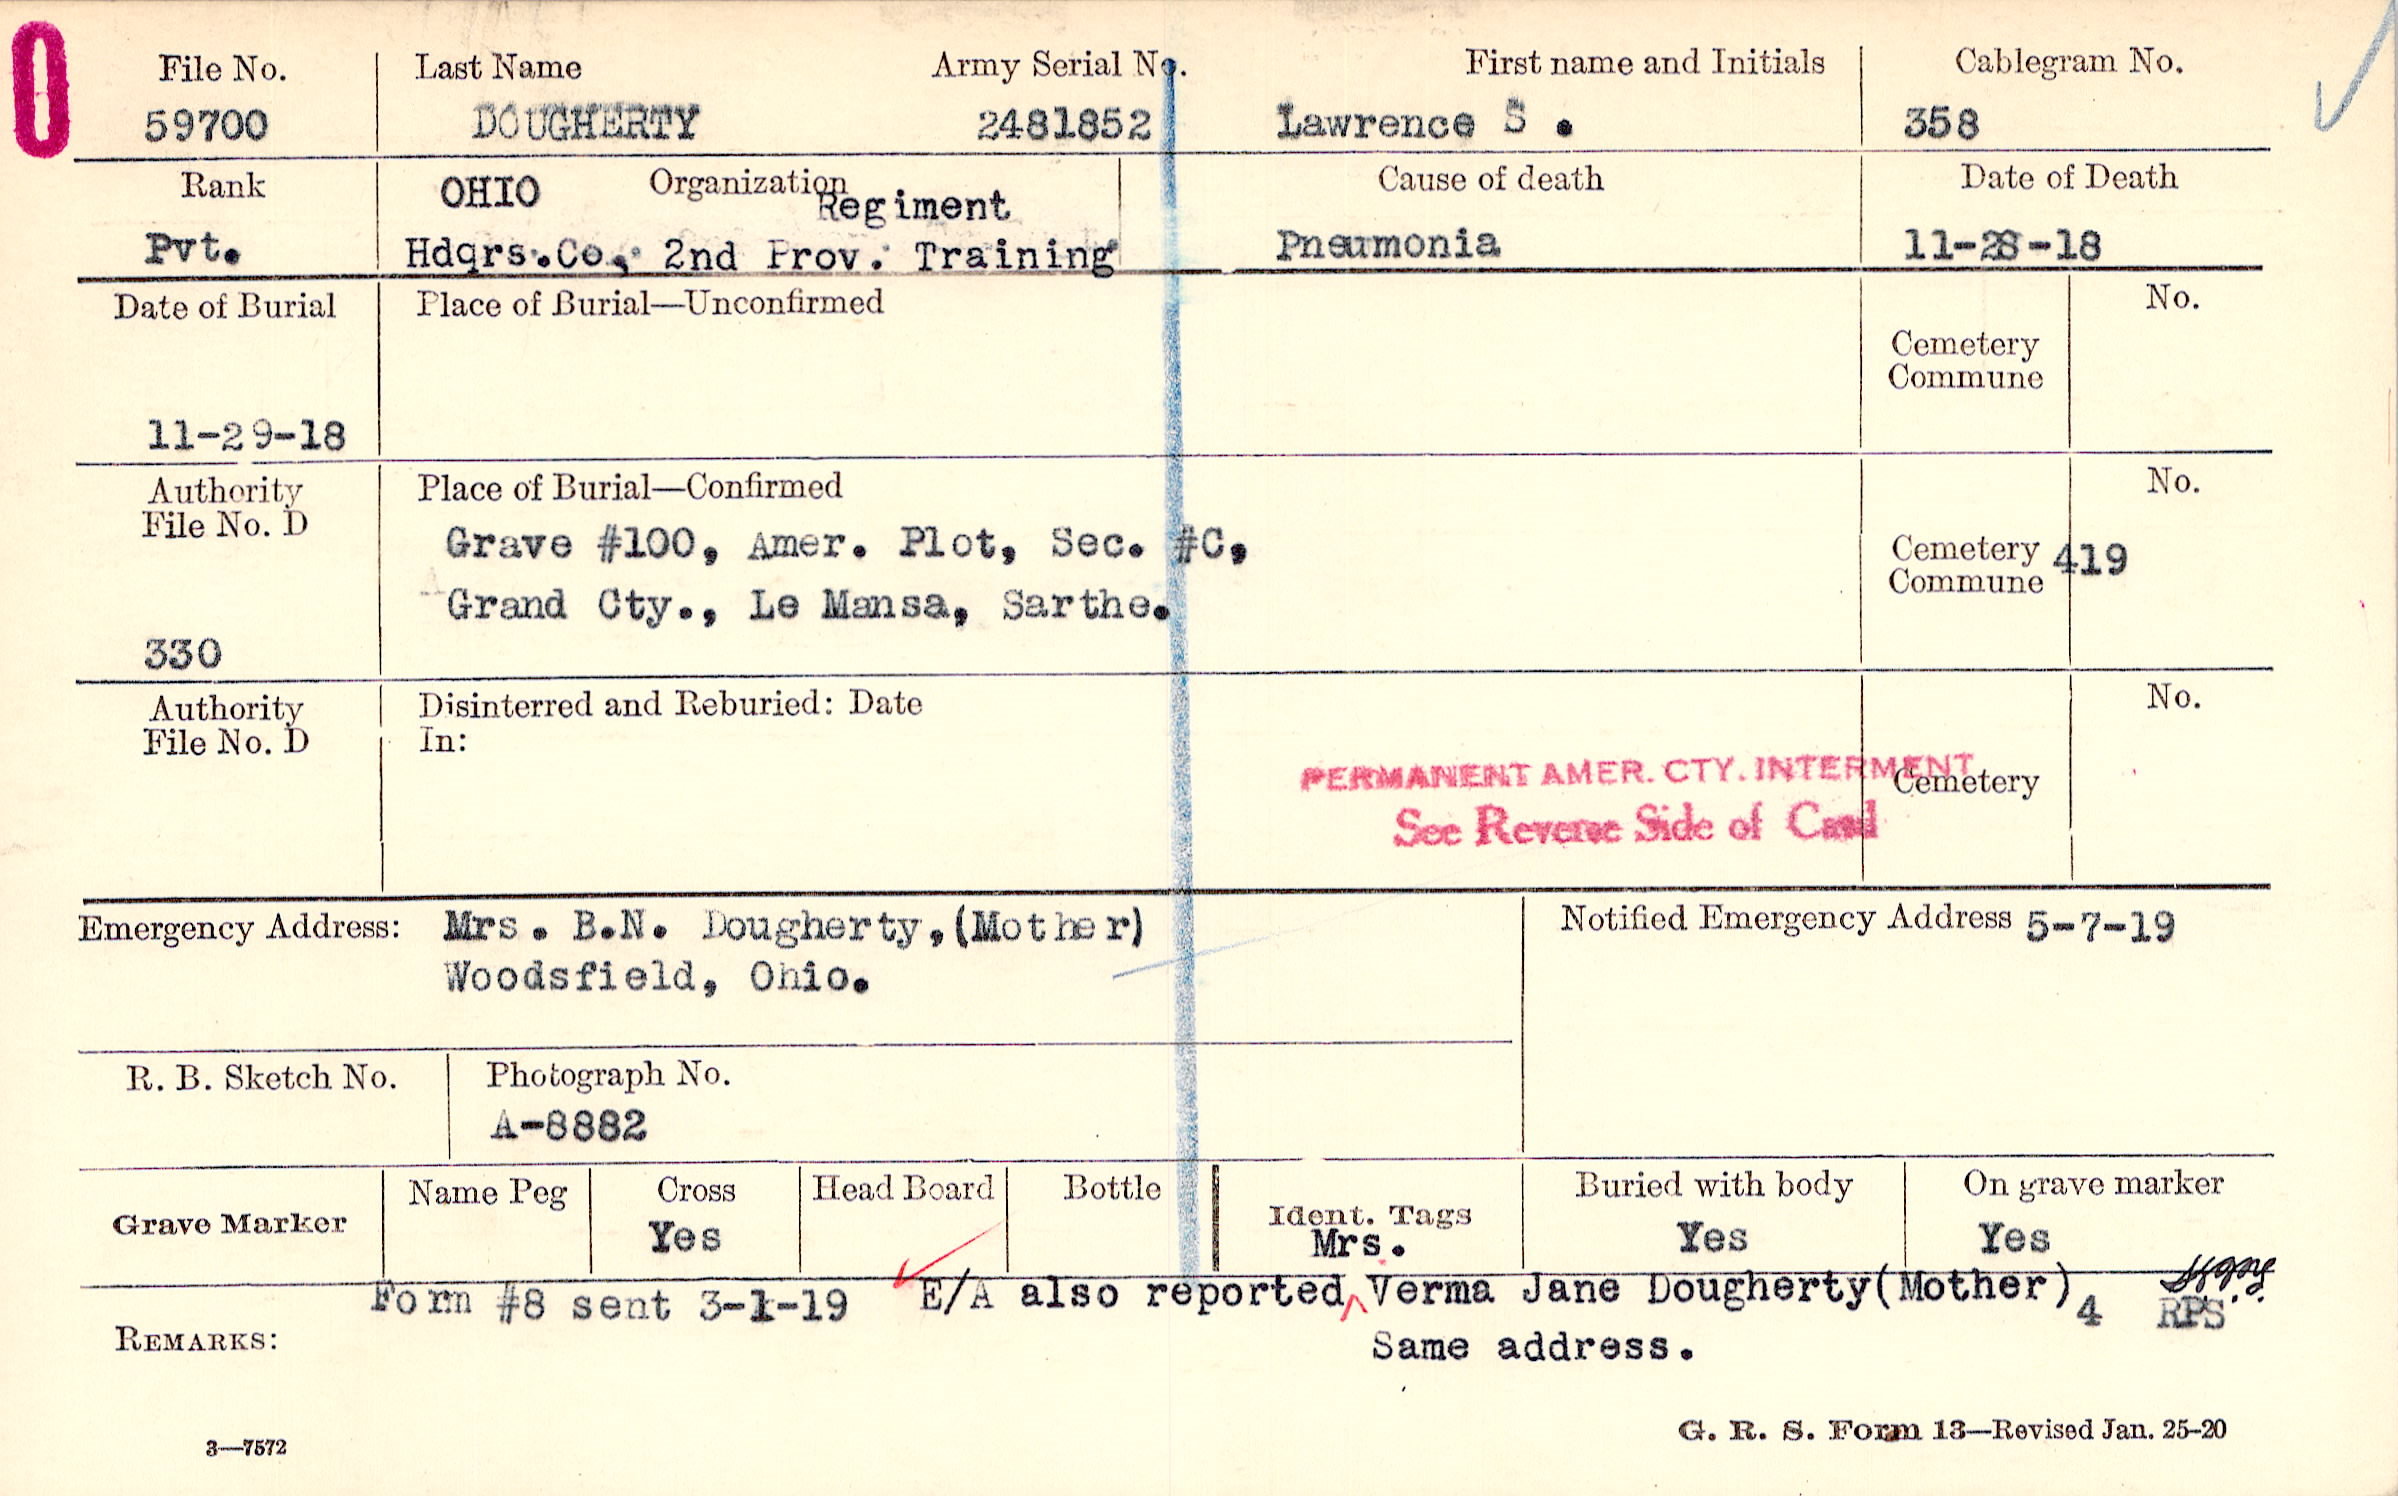 File No. Last Name Army Serial No. First name and Initials Cablegram No.
59700 DOUGHERTY 2481852 Lawrence S . 358
Rank OHIO Organization Cause of death Date of Death
Regiment
Pvt. Hdqrs.Co., 2nd Prov. Training Pneumonia 11-28-18
Date of Burial Place of Burial—Unconfirmed No.
Cemetery
Commune
11-29-18
Authority Place of Burial—Confirmed No.
File No. D
Grave #100, Amer. Plot, Sec. #C, Cemetery 419
Commune
Grand Cty., Le Mansa, Sarthe.
330
Authority Disinterred and Reburied: Date No.
File No. D In:
PERMANENT AMER. CTY. INTERMENT
Cemetery
See Reverse Side of Card
Emergency Address: Mrs. B.N. Dougherty,(Mother) Notified Emergency Address 5-7-19
Woodsfield, Ohio.
R. B. Sketch No. Photograph No.
A-8882
Grave Marker Name Peg Cross Head Board Bottle Ident. Tags Buried with body On grave marker
Yes Mrs. Yes Yes
Form #8 sent 3-1-19 E/A also reported Verma Jane Dougherty(Mother) 4 RPS.
REMARKS: Same address.
3—7572 G. R. S. Form 13—Revised Jan. 25-20